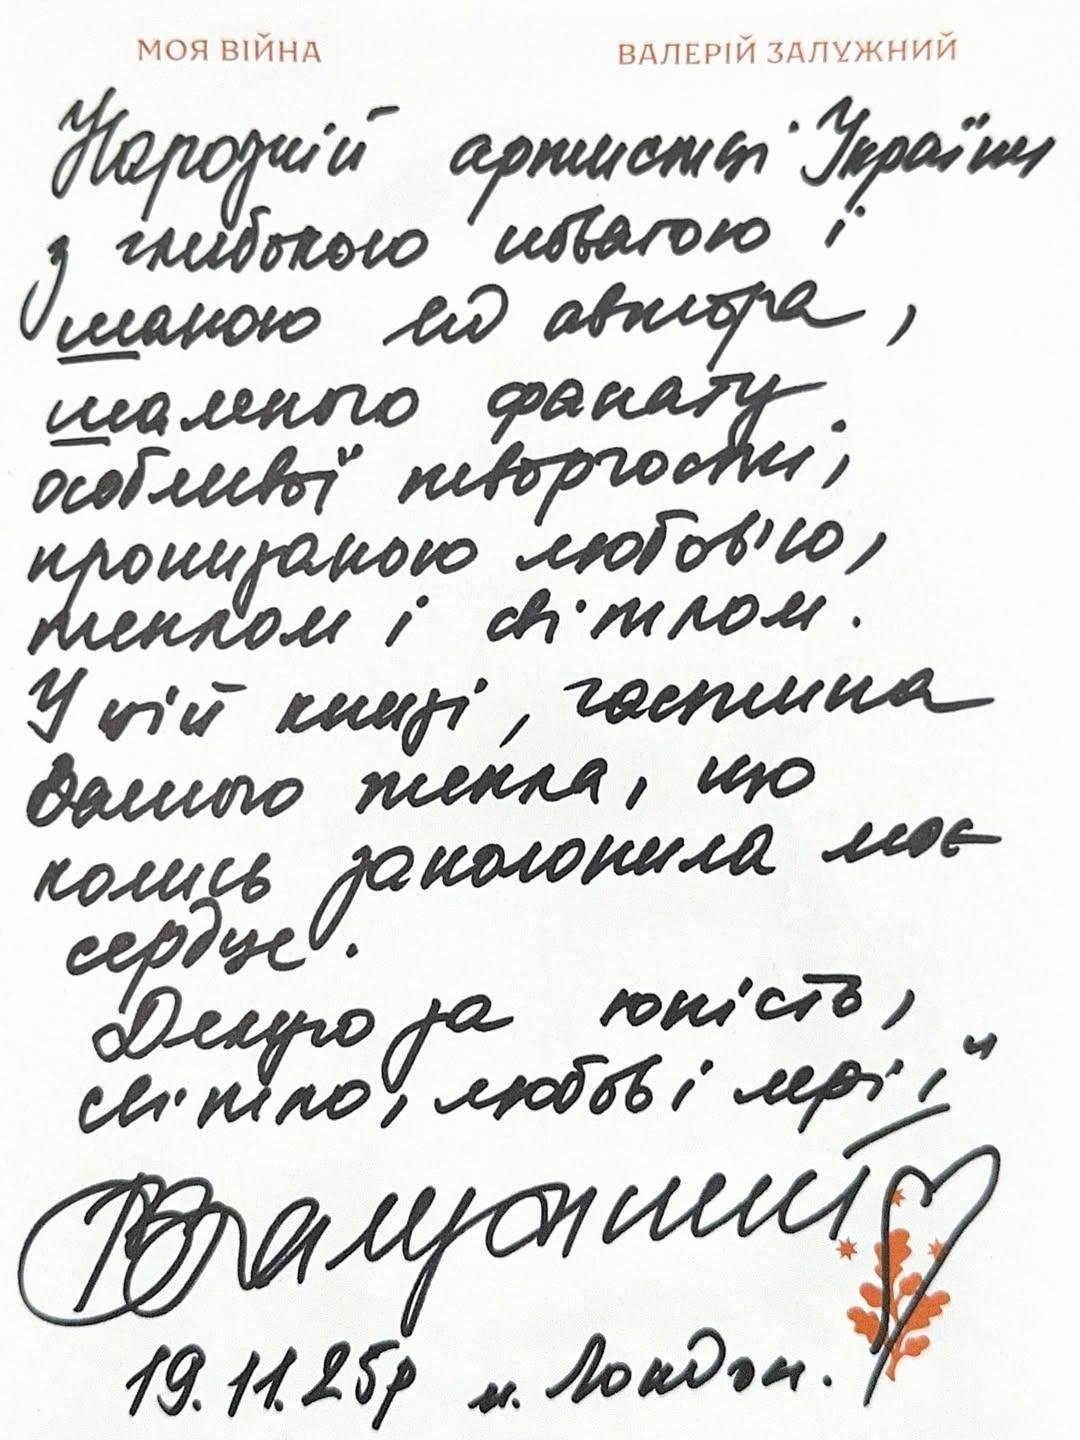 МОЯ ВІЙНА ВАЛЕРІЙ ЗАЛУЖНИЙ
Народній артистці України
з глибокою повагою і
шаною від автора,
шаленого фанату
особливої творчости,
пронизаною любов'ю,
теплом і світлом.
У цій книзі, частина
Вашого тепла, що
колись заполонила моє
сердце.
Дякую за юність,
світло, любов і мрії"
ВЗалужний
19.11.25р м. Лондон.